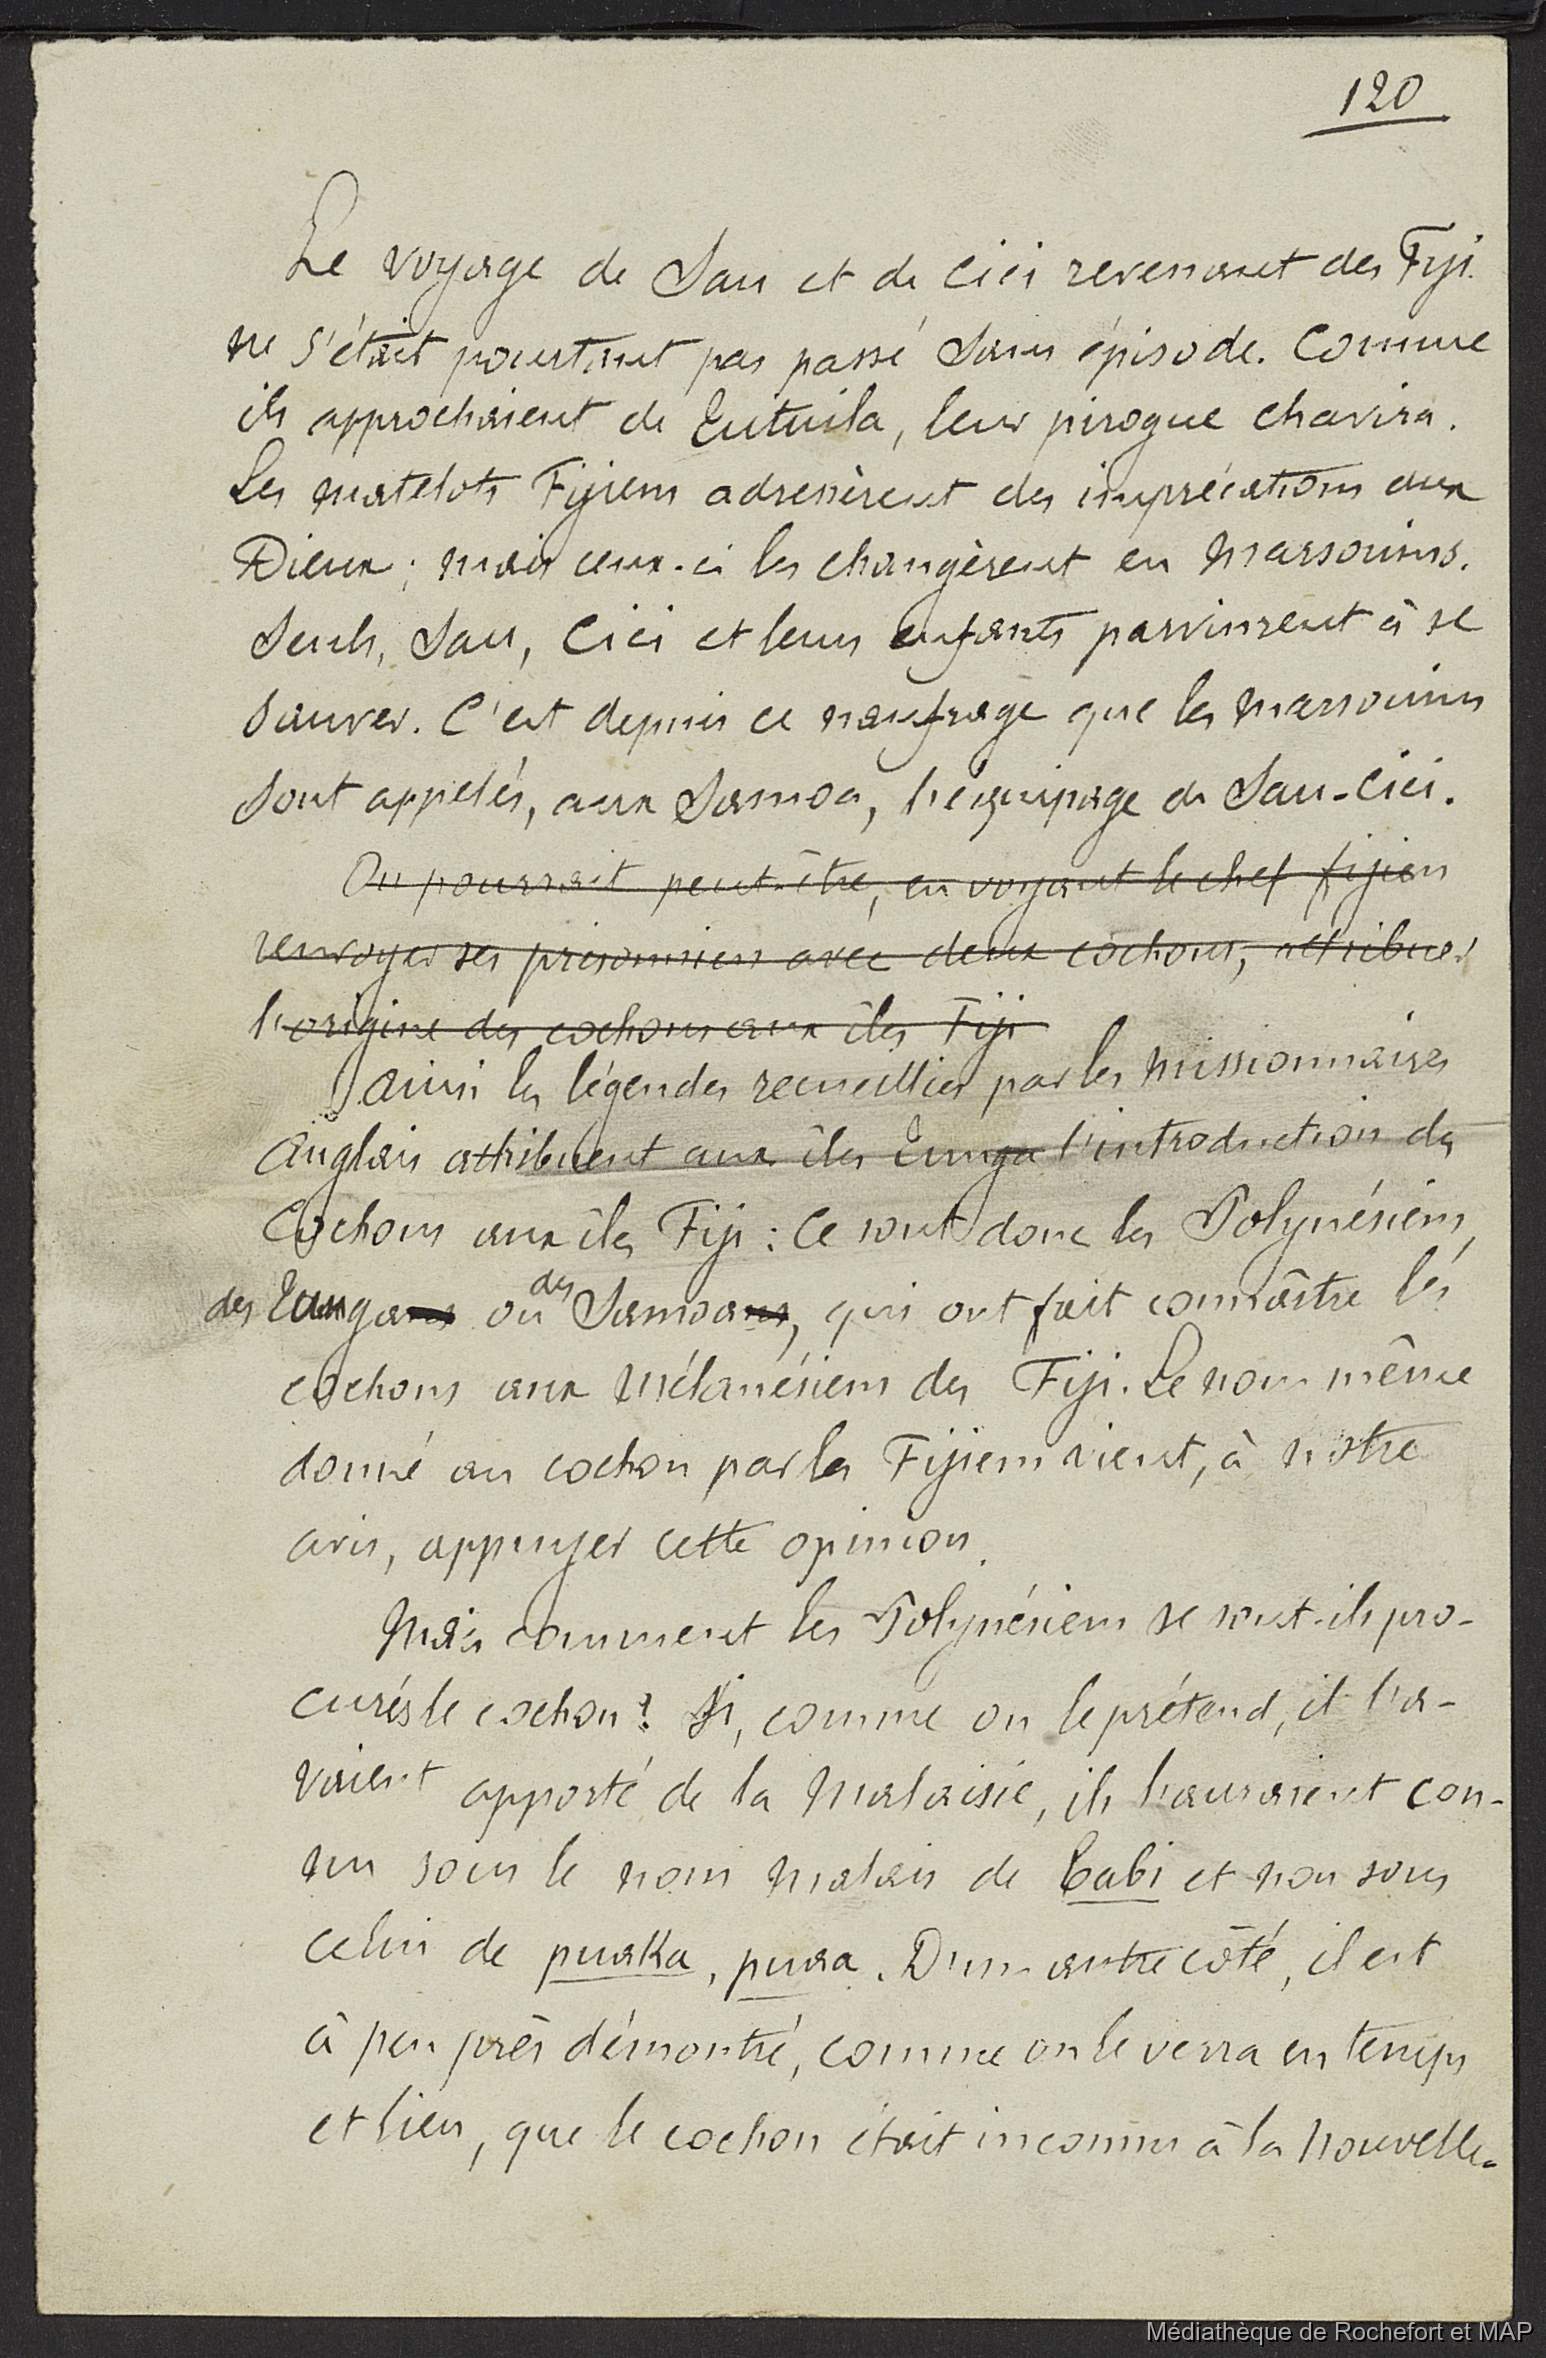 120
Le voyage de Sau et de Cici revenant des Fiji
ne s'était pourtant pas passé sans épisode. Comme
ils approchaient de Tutuila, leur pirogue chavira.
Les matelots Fijiens adressèrent des imprécations aux
Dieux; mais ceux-ci les changèrent en Marsouins.
Seuls, Sau, Cici et leurs enfants parvinrent à se
sauver. C'est depuis ce naufrage que les Marsouins
sont appelés, aux Samoa, l'équipage de Sau-Cici.
On pourrait peut-être, en voyant le chef fijien
renvoyer ses prisonniers avec deux cochons, attribuer
l'origine des cochons aux îles Fiji
Ainsi les légendes recueillies par les Missionnaires
Anglais attribuent aux îles Tunga l'introduction des
Cochons aux îles Fiji: Ce sont donc les Polynésiens,
des Tungans ou des Samoans, qui ont fait connâitre les
cochons aux Mélanésiens des Fiji. Le nom même
donné au cochon par les Fijiens vient, à notre
avis, appuyer cette opinion.
Mais comment les Polynésiens se sont-ils pro-
curés le cochon? Si, comme on le prétend, il l'a-
vaient apporté de la Malaisie, ils l'auraient con-
nu sous le nom Malais de babi et non sous
celui de puaka, puaa. D'un autre côté, il est
à peu près démontré, comme on le verra en temps
et lieu, que le cochon était inconnu à la Nouvelle-
Médiathèque de Rochefort et MAP